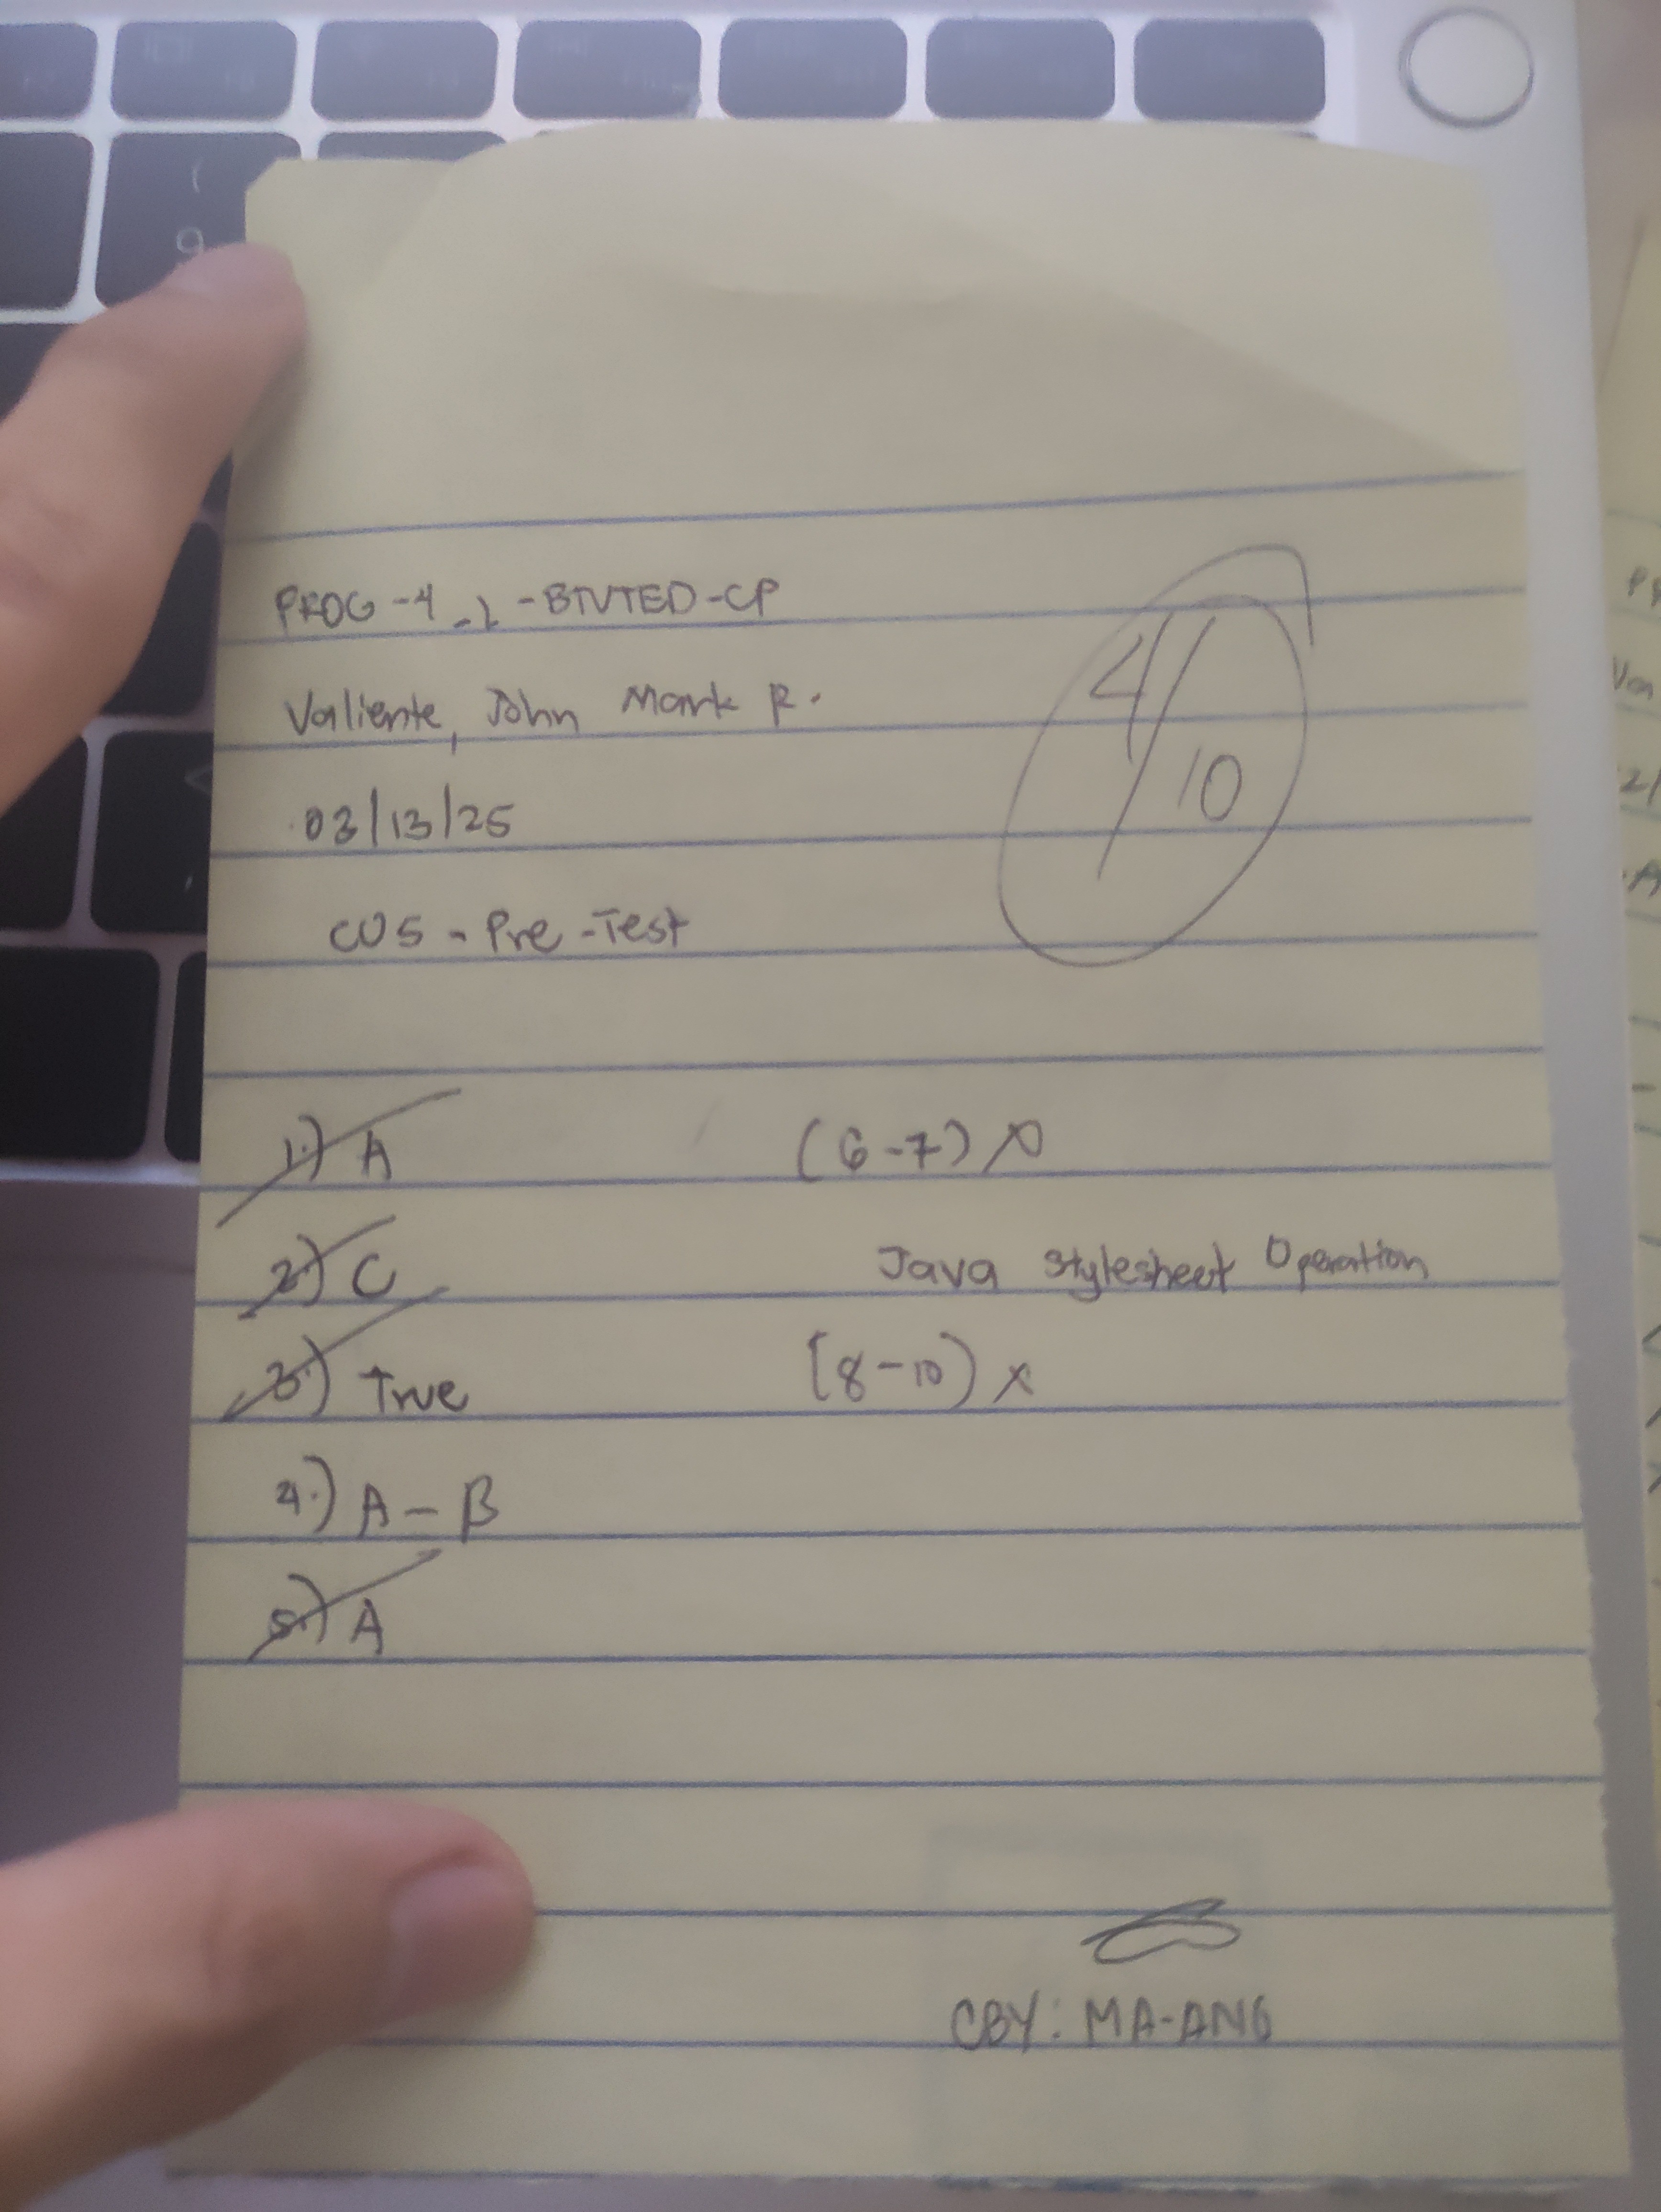 PROG-4_1-BTVTED-CP
Valiente, John Mark R.
03/13/25
CUS - Pre-Test
4/10
1.) A
2.) C
3.) True
4.) A - B
5.) A
(6-7) X
Java Stylesheet Operation
(8-10) X
CBY: MA-ANG
(
9